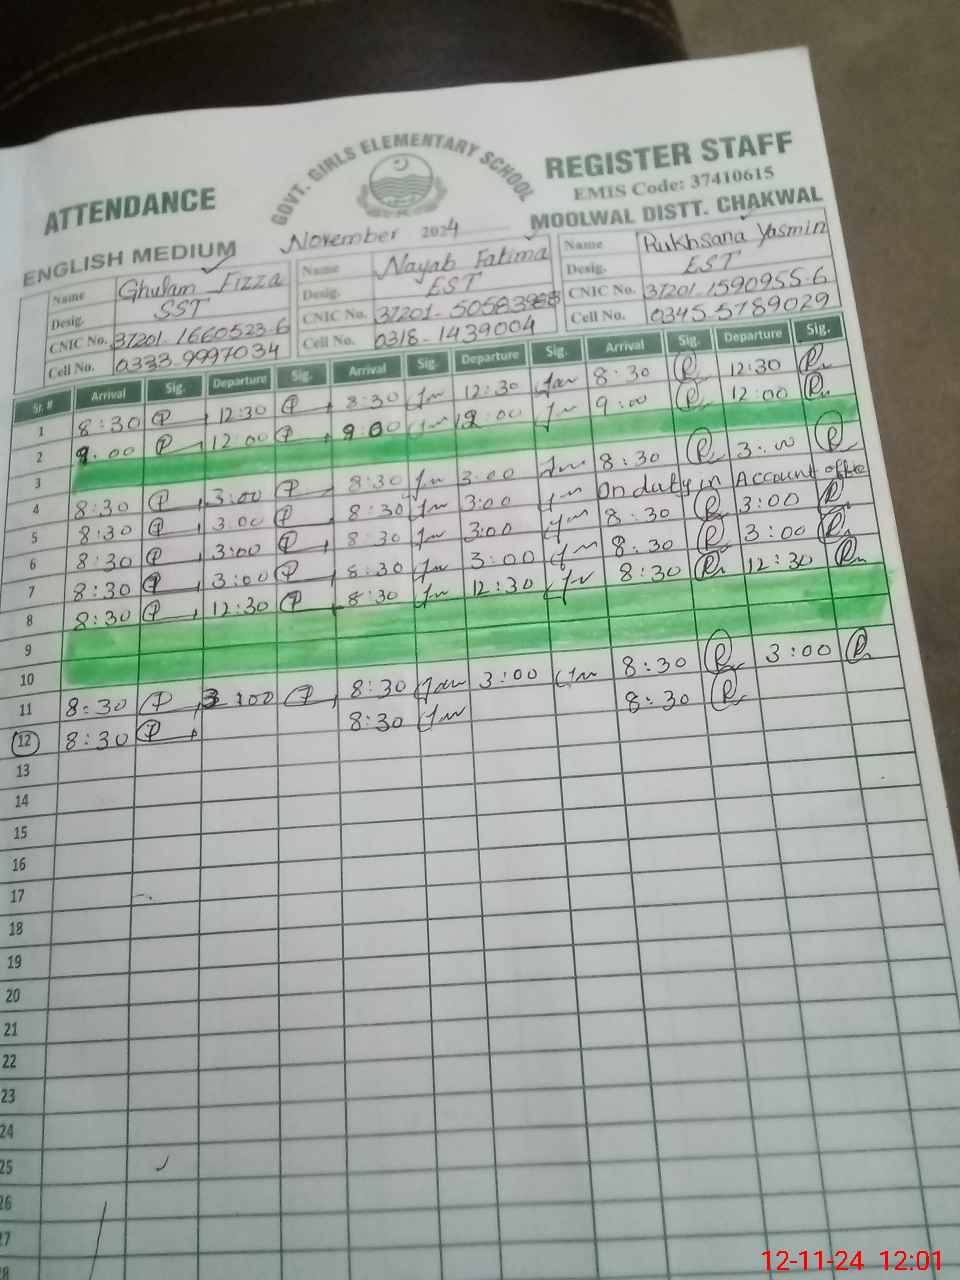 GOVT. GIRLS ELEMENTARY SCHOOL
ATTENDANCE REGISTER STAFF
EMIS Code: 37410615
ENGLISH MEDIUM November 2024 MOOLWAL DISTT. CHAKWAL
Name Ghulam Fizza Name Nayab Fatima Name Rukhsana Yasmin
Desig. SST Desig. EST Desig. EST
CNIC No. 37201-1660523-6 CNIC No. 37201-50583 CNIC No. 37201-1590955-6
Cell No. 0333-9997034 Cell No. 0318-1439004 Cell No. 0345 5789029
Sr. # Arrival Sig. Departure Sig. Arrival Sig. Departure Sig. Arrival Sig. Departure Sig.
1 8:30 12:30 8:30 12:30 8:30 12:30
2 9:00 12:00 9:00 12:00 9:00 12:00
3
4 8:30 3:00 8:30 3:00 8:30 3:00
5 8:30 3:00 8:30 3:00 On duty in Account office
6 8:30 3:00 8:30 3:00 8:30 3:00
7 8:30 3:00 8:30 3:00 8:30 3:00
8 8:30 12:30 8:30 12:30 8:30 12:30
9
10
11 8:30 3:00 8:30 3:00 8:30 3:00
12 8:30 8:30 8:30
13
14
15
16
17
18
19
20
21
22
23
24
25
26
27
28
12-11-24 12:01